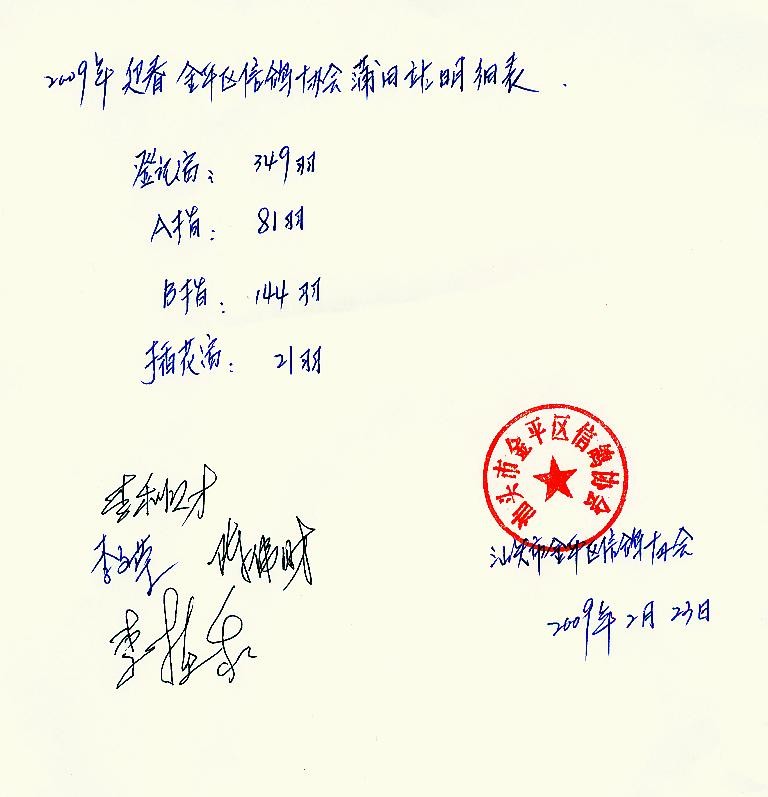 2009年迎春金平区信鸽协会蒲田站明细表.
登记宫: 349羽
A指: 81羽
B指: 144羽
插花宫: 21羽
汕头市金平区信鸽协会
汕头市金平区信鸽协会
2009年2月23日